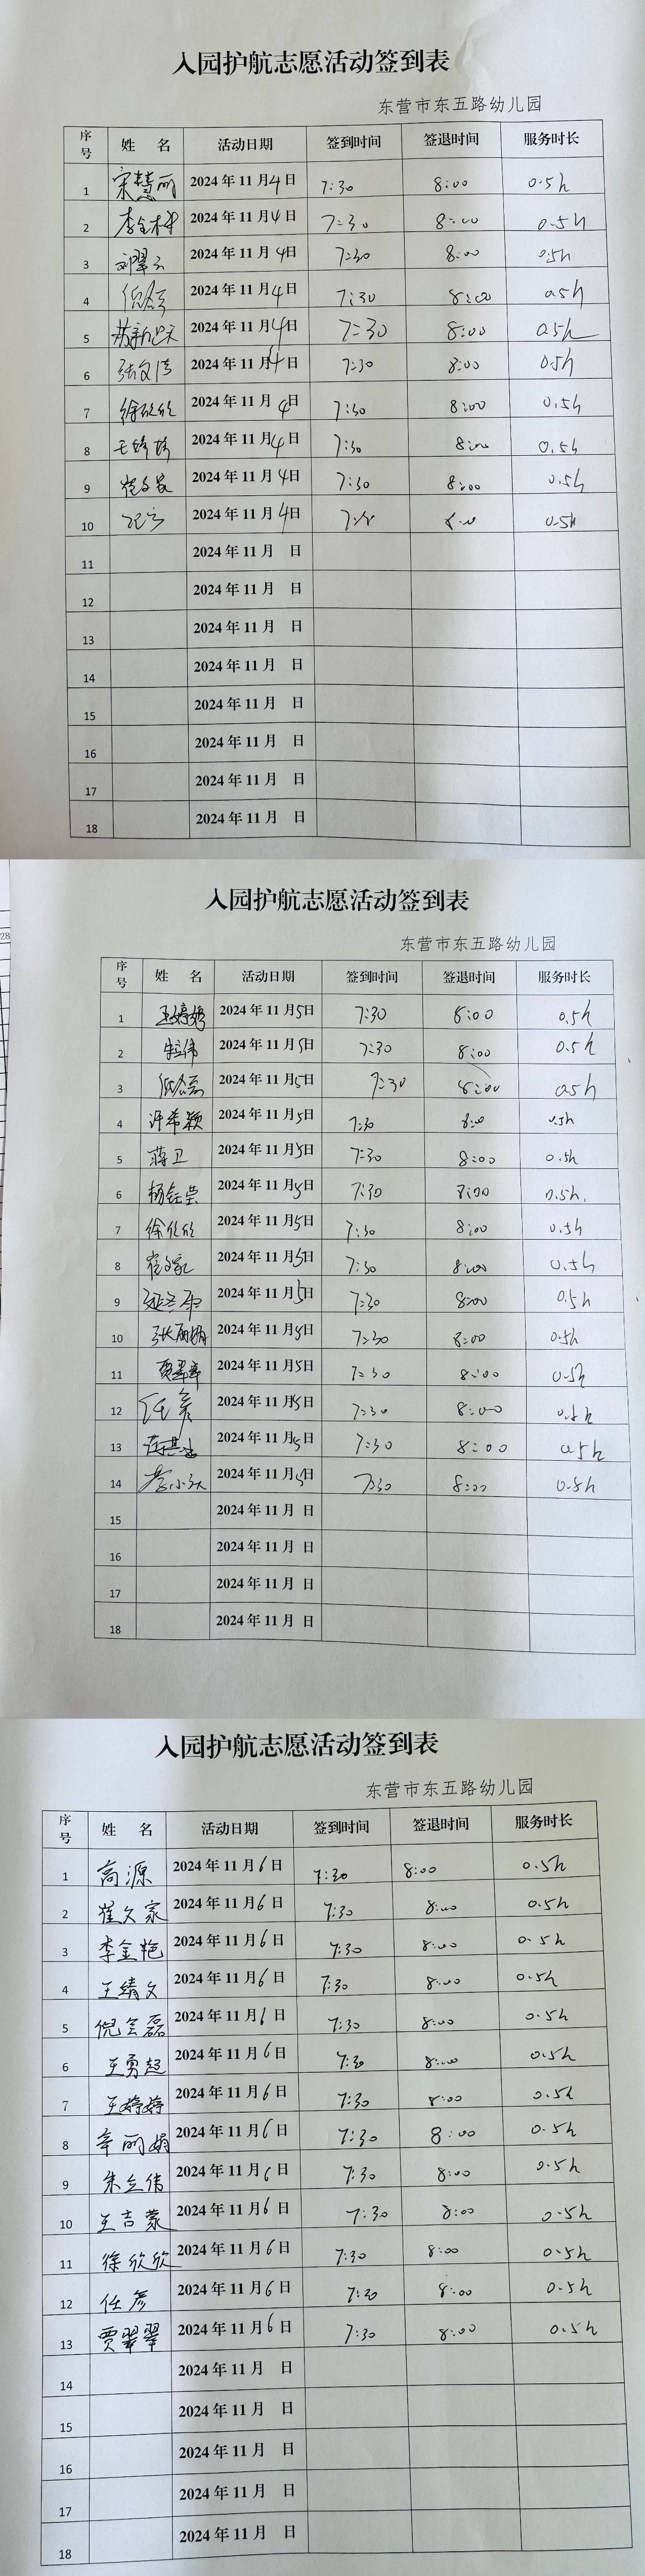 入园护航志愿活动签到表
东营市东五路幼儿园
序号 姓 名 活动日期 签到时间 签退时间 服务时长
1 宋慧丽 2024年11月4日 7:30 8:00 0.5h
2 2024年11月4日 7:30 8:00 0.5h
3 刘翠云 2024年11月4日 7:30 8:00 0.5h
4 2024年11月4日 7:30 8:00 0.5h
5 2024年11月4日 7:30 8:00 0.5h
6 张文洁 2024年11月4日 7:30 8:00 0.5h
7 徐欣欣 2024年11月4日 7:30 8:00 0.5h
8 王婷婷 2024年11月4日 7:30 8:00 0.5h
9 崔文家 2024年11月4日 7:30 8:00 0.5h
10 2024年11月4日 0.5h
11 2024年11月 日
12 2024年11月 日
13 2024年11月 日
14 2024年11月 日
15 2024年11月 日
16 2024年11月 日
17 2024年11月 日
18 2024年11月 日
28
入园护航志愿活动签到表
东营市东五路幼儿园
序号 姓 名 活动日期 签到时间 签退时间 服务时长
1 王婷婷 2024年11月5日 7:30 8:00 0.5h
2 朱立伟 2024年11月5日 7:30 8:00 0.5h
3 2024年11月5日 7:30 8:00 0.5h
4 许希颖 2024年11月5日 7:30 8:00 0.5h
5 蒋卫 2024年11月5日 7:30 8:00 0.5h
6 杨钰莹 2024年11月5日 7:30 8:00 0.5h.
7 徐欣欣 2024年11月5日 7:30 8:00 0.5h
8 崔文家 2024年11月5日 7:30 8:00 0.5h
9 2024年11月5日 7:30 8:00 0.5h
10 张丽娟 2024年11月5日 7:30 8:00 0.5h
11 贾翠翠 2024年11月5日 7:30 8:00 0.5h
12 任彦 2024年11月5日 7:30 8:00 0.5h
13 2024年11月5日 7:30 8:00 0.5h
14 2024年11月5日 7:30 8:00 0.5h
15 2024年11月 日
16 2024年11月 日
17 2024年11月 日
18 2024年11月 日
入园护航志愿活动签到表
东营市东五路幼儿园
序号 姓 名 活动日期 签到时间 签退时间 服务时长
1 高源 2024年11月6日 7:30 8:00 0.5h
2 崔文家 2024年11月6日 7:30 8:00 0.5h
3 李金艳 2024年11月6日 7:30 8:00 0.5h
4 王绪文 2024年11月6日 7:30 8:00 0.5h
5 倪会磊 2024年11月6日 7:30 8:00 0.5h
6 王勇超 2024年11月6日 7:30 8:00 0.5h
7 王婷婷 2024年11月6日 7:30 8:00 0.5h
8 辛丽娟 2024年11月6日 7:30 8:00 0.5h
9 朱立伟 2024年11月6日 7:30 8:00 0.5h
10 王吉蒙 2024年11月6日 7:30 8:00 0.5h
11 徐欣欣 2024年11月6日 7:30 8:00 0.5h
12 任彦 2024年11月6日 7:30 8:00 0.5h
13 贾翠翠 2024年11月6日 7:30 8:00 0.5h
14 2024年11月 日
15 2024年11月 日
16 2024年11月 日
17 2024年11月 日
18 2024年11月 日